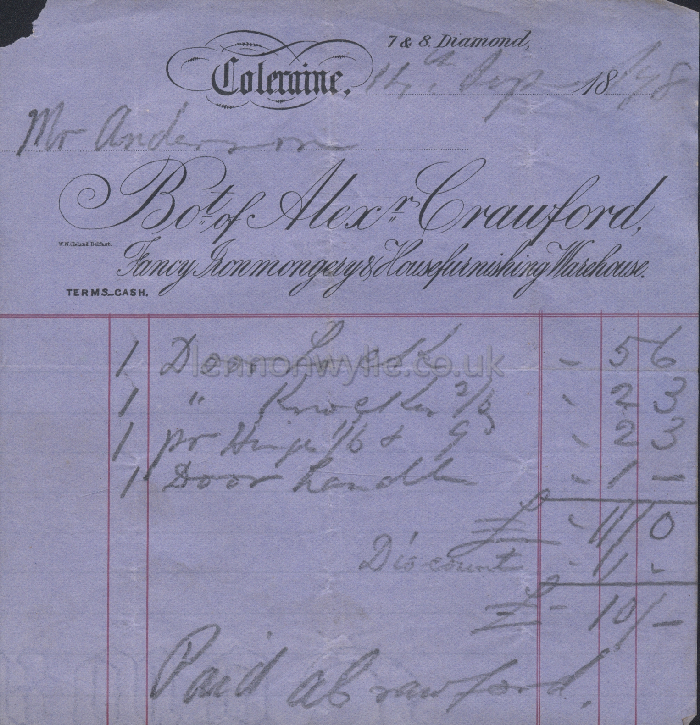 7 & 8. Diamond,
Coleraine, 14th Sep 1898
Mr Anderson
Bot. of Alexr. Crawford,
Fancy Ironmongery & Housefurnishing Warehouse.
TERMS_CASH.
1 Door Lock - 5 6
1 " Knocker 2/3 - 2 3
1 pr Hinge 1/6 & 9d - 2 3
1 Door handle - 1 -
£ - 11/0
Discount - 1/-
£ - 10/-
Paid ACrawford.
lennonwylie.co.uk